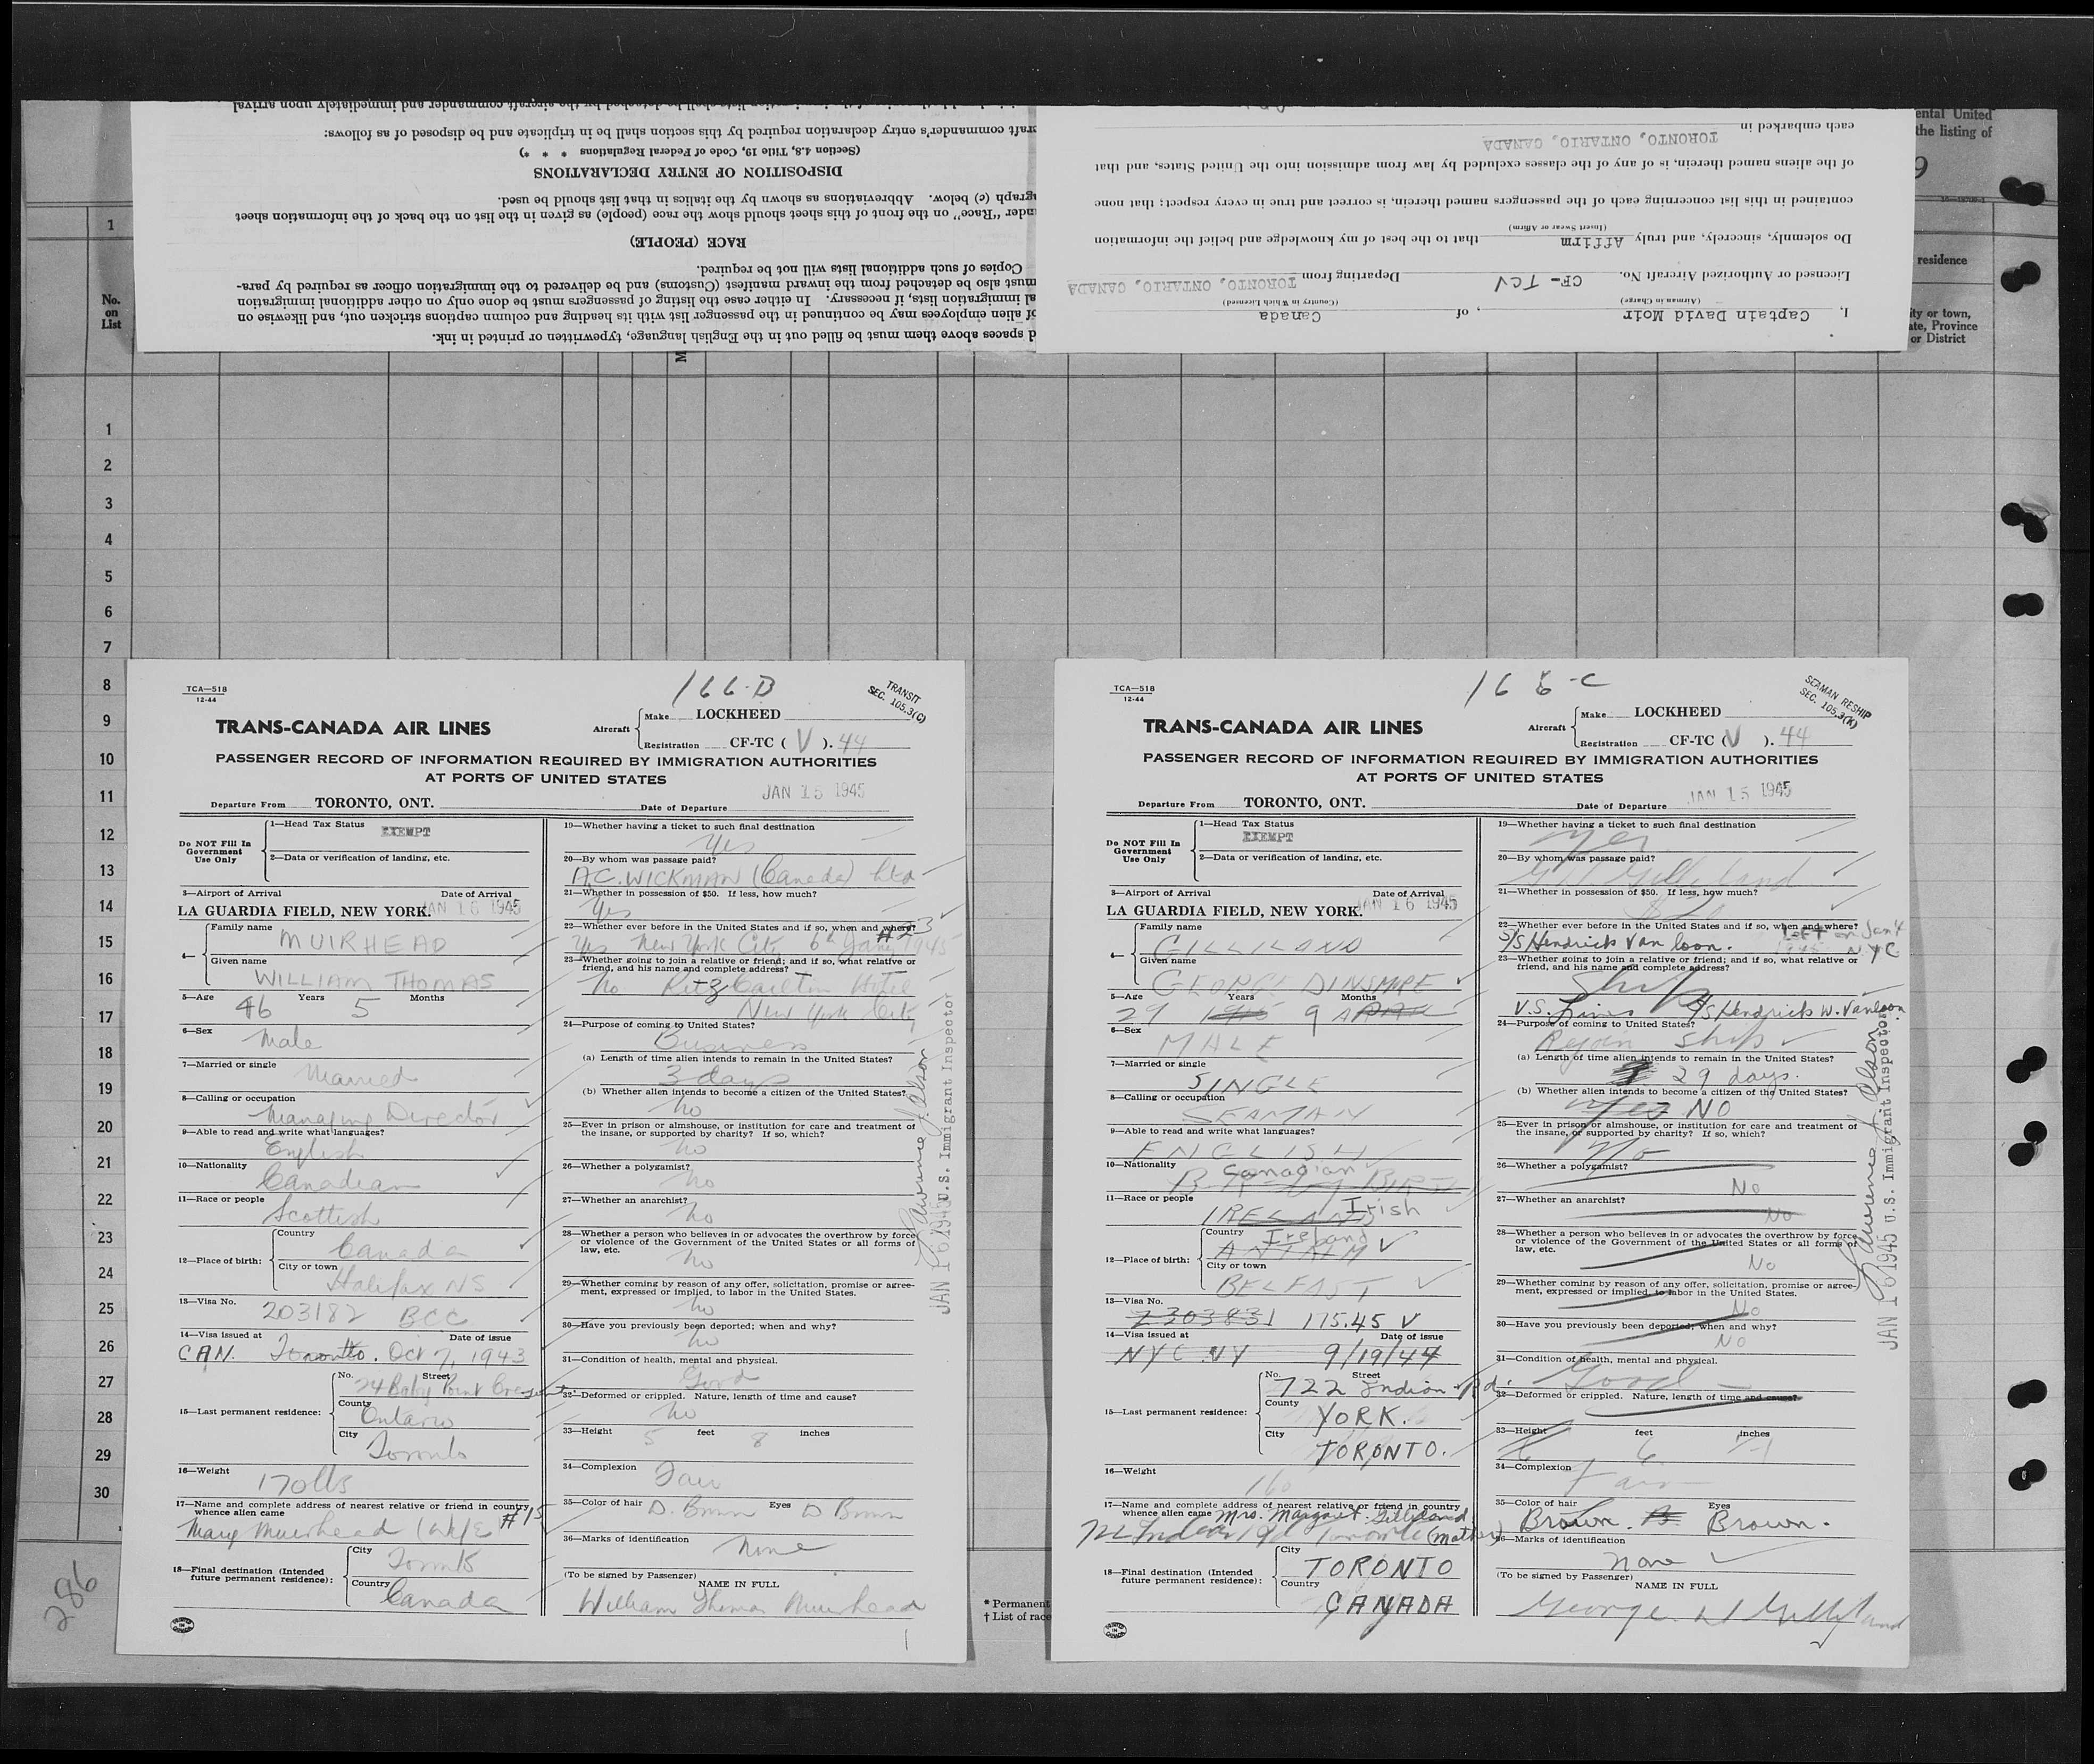 arrival upon immediately and commander aircraft the by detached be shall
craft commander's entry declaration required by this section shall be in triplicate and be disposed of as follows:
(Section 4.8, Title 19, Code of Federal Regulations * * *)
DISPOSITION OF ENTRY DECLARATIONS
agraph (c) below. Abbreviations as shown by the italics in that list should be used.
nder "Race" on the front of this sheet should show the race (people) as given in the list on the back of the information sheet
RACE (PEOPLE)
Copies of such additional lists will not be required.
must also be detached from the inward manifest (Customs) and be delivered to the immigration officer as required by para-
al immigration lists, if necessary. In either case the listing of passengers must be done only on other additional immigration
of alien employees may be continued in the passenger list with its heading and column captions stricken out, and likewise on
d spaces above them must be filled out in the English language, typewritten or printed in ink.
each embarked in
TORONTO, ONTARIO, CANADA
of the aliens named therein, is of any of the classes excluded by law from admission into the United States, and that
contained in this list concerning each of the passengers named therein, is correct and true in every respect; that none
(Insert Swear or Affirm)
Do solemnly, sincerely, and truly Affirm that to the best of my knowledge and belief the information
Licensed or Authorized Aircraft No. CF-TCV Departing from TORONTO, ONTARIO, CANADA
(Airman in Charge) (Country in Which Licensed)
I, Captain David Moir, of Canada
ental United
the listing of
9
residence
ity or town,
ate, Province
or District
1
No.
on
List
M
1
2
3
4
5
6
7
8
9
10
11
12
13
14
15
16
17
18
19
20
21
22
23
24
25
26
27
28
29
30
286
* Permanent
† List of race
TCA—518
12-44
166-B
TRANSIT
SEC. 105.3(C)
TRANS-CANADA AIR LINES
Aircraft
Make LOCKHEED
Registration CF-TC ( V ). 44
PASSENGER RECORD OF INFORMATION REQUIRED BY IMMIGRATION AUTHORITIES
AT PORTS OF UNITED STATES
JAN 15 1945
Departure From TORONTO, ONT. Date of Departure
Do NOT Fill In
Government
Use Only
1—Head Tax Status
EXEMPT
2—Data or verification of landing, etc.
3—Airport of Arrival Date of Arrival
LA GUARDIA FIELD, NEW YORK. JAN 16 1945
4—
Family name
MUIRHEAD
Given name
WILLIAM THOMAS
5—Age 46 Years 5 Months
6—Sex
Male
7—Married or single
Married
8—Calling or occupation
Managing Director
9—Able to read and write what languages?
English
10—Nationality
Canadian
11—Race or people
Scottish
12—Place of birth:
Country
Canada
City or town
Halifax NS
13—Visa No. 203182 BCC
14—Visa issued at Date of issue
CAN. Toronto. Oct 7, 1943
15—Last permanent residence:
No. Street
24 Baby Point Crescent
County
Ontario
City
Toronto
16—Weight
170 lbs
17—Name and complete address of nearest relative or friend in country
whence alien came
Mary Muirhead (Wife #15
18—Final destination (Intended
future permanent residence):
City
Toronto
Country
Canada
19—Whether having a ticket to such final destination
Yes
20—By whom was passage paid?
A.C. WICKMAN (Canada) Ltd
21—Whether in possession of $50. If less, how much?
Yes
22—Whether ever before in the United States and if so, when and where?
Yes New York City 6th Jan 1945
#23
23—Whether going to join a relative or friend; and if so, what relative or
friend, and his name and complete address?
No Ritz Carlton Hotel
New York City
24—Purpose of coming to United States?
Business
(a) Length of time alien intends to remain in the United States?
3 days
(b) Whether alien intends to become a citizen of the United States?
No
25—Ever in prison or almshouse, or institution for care and treatment of
the insane, or supported by charity? If so, which?
No
26—Whether a polygamist?
No
27—Whether an anarchist?
No
28—Whether a person who believes in or advocates the overthrow by force
or violence of the Government of the United States or all forms of
law, etc.
No
29—Whether coming by reason of any offer, solicitation, promise or agree-
ment, expressed or implied, to labor in the United States.
No
30—Have you previously been deported; when and why?
No
31—Condition of health, mental and physical.
Good
32—Deformed or crippled. Nature, length of time and cause?
No
33—Height 5 feet 8 inches
34—Complexion Fair
35—Color of hair D. Brown Eyes D Brown
36—Marks of identification
None
(To be signed by Passenger) NAME IN FULL
William Thomas Muirhead
Lawrence J. Olson
JAN 16 1945 U.S. Immigrant Inspector
TCA—518
12-44
166-C
SEAMAN RESHIP
SEC. 105.3(K)
TRANS-CANADA AIR LINES
Aircraft
Make LOCKHEED
Registration CF-TC ( V ). 44
PASSENGER RECORD OF INFORMATION REQUIRED BY IMMIGRATION AUTHORITIES
AT PORTS OF UNITED STATES
JAN 15 1945
Departure From TORONTO, ONT. Date of Departure
Do NOT Fill In
Government
Use Only
1—Head Tax Status
EXEMPT
2—Data or verification of landing, etc.
3—Airport of Arrival Date of Arrival
LA GUARDIA FIELD, NEW YORK. JAN 16 1945
4—
Family name
GILLILAND
Given name
GEORGE DINSMORE
5—Age Years Months
29 9
6—Sex
MALE
7—Married or single
SINGLE
8—Calling or occupation
SEAMAN
9—Able to read and write what languages?
ENGLISH
10—Nationality
Canadian
11—Race or people
IRELAND Irish
12—Place of birth:
Country Ireland
ANTRIM
City or town
BELFAST
13—Visa No.
Z 303831 175.45 V
14—Visa issued at Date of issue
NYC NY 9/19/44
15—Last permanent residence:
No. Street
722 Indian Rd.
County
YORK.
City
TORONTO.
16—Weight
160
17—Name and complete address of nearest relative or friend in country
whence alien came Mrs. Margaret Gilliland
722 Indian Rd Toronto (mother)
18—Final destination (Intended
future permanent residence):
City
TORONTO
Country
CANADA
19—Whether having a ticket to such final destination
Yes
20—By whom was passage paid?
Gilliland
21—Whether in possession of $50. If less, how much?
$20
22—Whether ever before in the United States and if so, when and where?
S/S Hendrick Van loon. Left on Jan 4
1945 NYC
23—Whether going to join a relative or friend; and if so, what relative or
friend, and his name and complete address?
Ship
V.S. Lines S/S Hendrick W. Vanloon
24—Purpose of coming to United States?
Rejoin Ship
(a) Length of time alien intends to remain in the United States?
29 days.
(b) Whether alien intends to become a citizen of the United States?
Yes NO
25—Ever in prison or almshouse, or institution for care and treatment of
the insane, or supported by charity? If so, which?
No
26—Whether a polygamist?
No
27—Whether an anarchist?
No
28—Whether a person who believes in or advocates the overthrow by force
or violence of the Government of the United States or all forms of
law, etc.
No
29—Whether coming by reason of any offer, solicitation, promise or agree-
ment, expressed or implied, to labor in the United States.
No
30—Have you previously been deported; when and why?
No
31—Condition of health, mental and physical.
Good
32—Deformed or crippled. Nature, length of time and cause?
33—Height 6 feet inches
34—Complexion
Fair
35—Color of hair Eyes
Brown. Brown.
36—Marks of identification
none
(To be signed by Passenger) NAME IN FULL
George D Gilliland
Lawrence J. Olson
JAN 16 1945 U.S. Immigrant Inspector